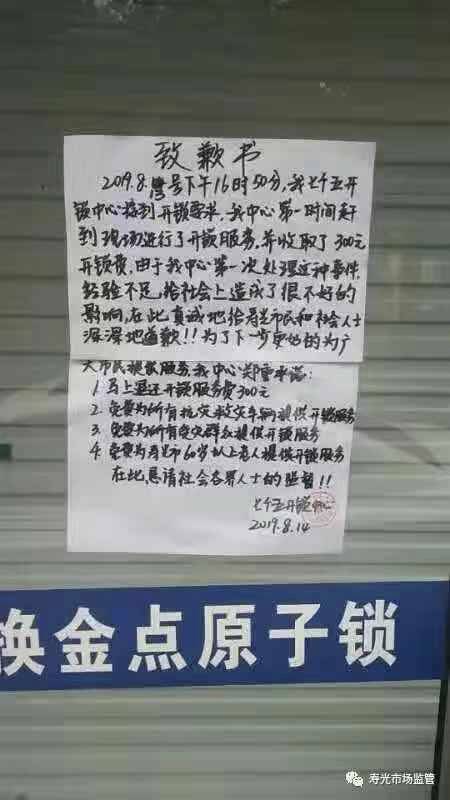 致歉书
2019.8.13号下午16时50分,我七个五开
锁中心接到开锁要求,我中心第一时间赶
到现场进行了开锁服务,并收取了300元
开锁费,由于我中心第一次处理这种事件,
经验不足,给社会上造成了很不好的
影响,在此真诚地给寿光市民和社会人士
深深地道歉!!为了下一步更好的为广
大市民提供服务,我中心郑重承诺:
1.马上退还开锁服务费300元
2.免费为所有抗灾救灾车辆提供开锁服务
3.免费为所有受灾群众提供开锁服务
4.免费为寿光市60岁以上老人提供开锁服务
在此,恳请社会各界人士的监督!!
七个五开锁中心
2019.8.14
换金点原子锁
寿光市场监管